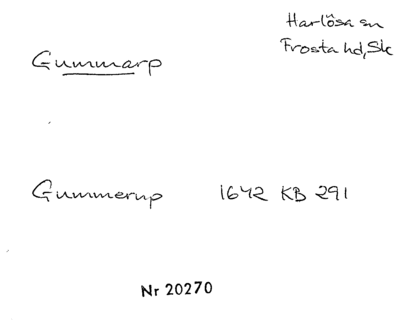 Harlösa sn
Frosta hd, Sk
Gummarp
Gummerup 1642 KB 291
Nr 20270